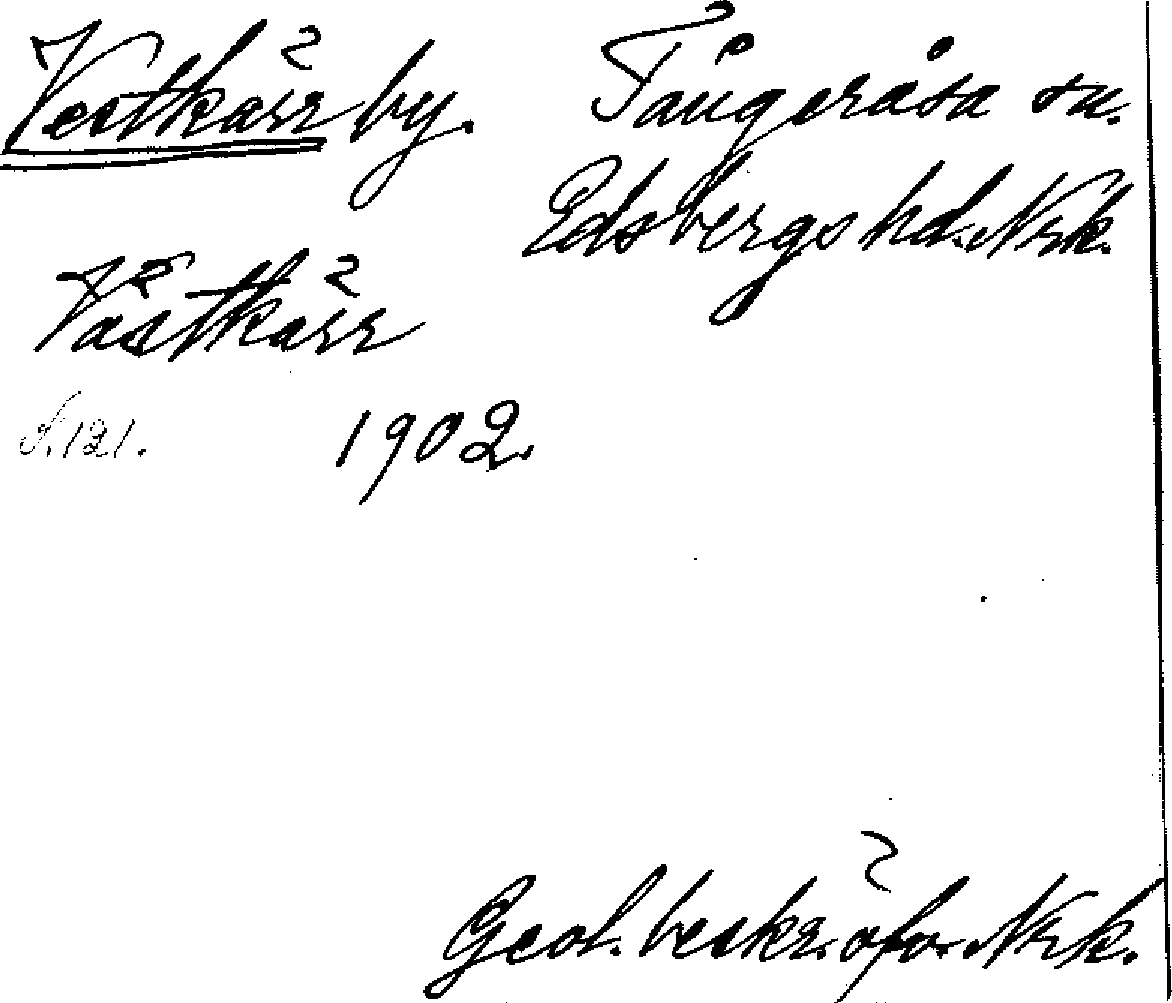 Vestkärr by. Tångeråsa sn.
Edsbergs hd. Nrk.
Västkärr
s. 121. 1902.
Geol. beskr. öfv. Nrk.